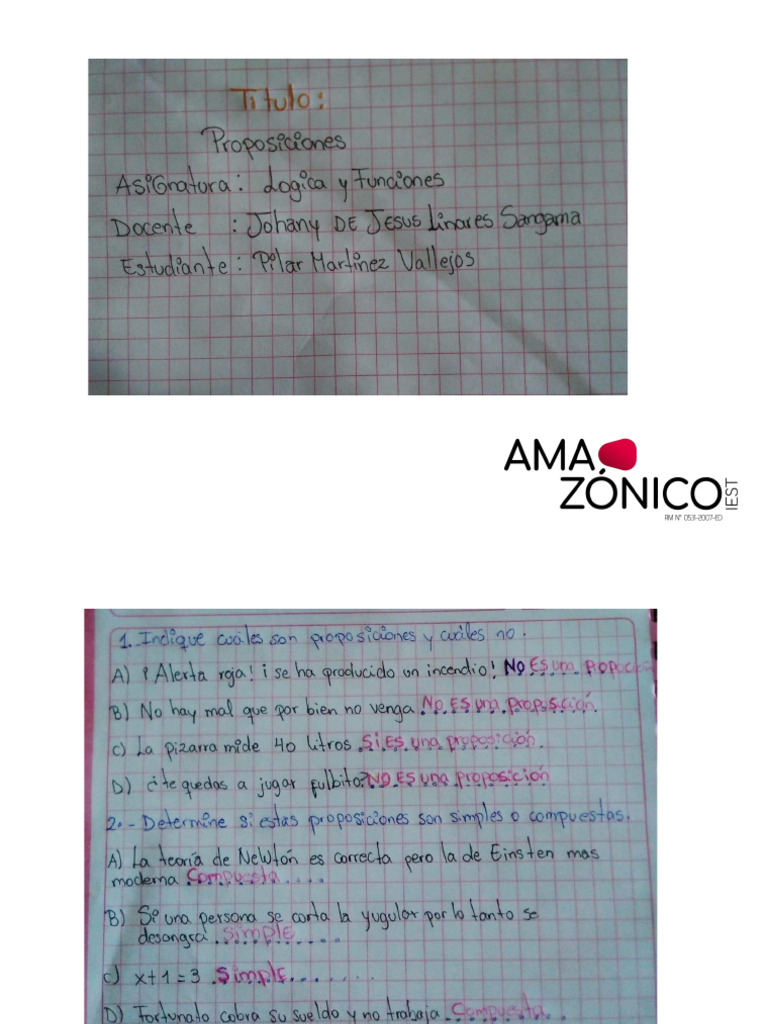 Titulo:
Proposiciones
Asignatura: Logica y Funciones
Docente : Johany DE JESUS Linares Sangama
Estudiante : Pilar Martinez Vallejos
AMA
ZÓNICO
IEST
RM N° 0531-2007-ED
1. Indique cuáles son proposiciones y cuáles no.
A) ¡Alerta roja! ¡se ha producido un incendio! No ES una
B) No hay mal que por bien no venga. No ES una proposición.
c) La pizarra mide 40 litros. Si ES una proposición.
D) ¿te quedas a jugar fulbito? NO ES una proposición
2.- Determine si estas proposiciones son simples o compuestas.
A) La teoría de Newtón es correcta pero la de Einsten mas
moderna Compuesta....
B) Si una persona se corta la yugular por lo tanto se
desangra. simple....
c) x+1=3 .Simple.......
D) Fortunato cobra su sueldo y no trabaja. Compuesta...